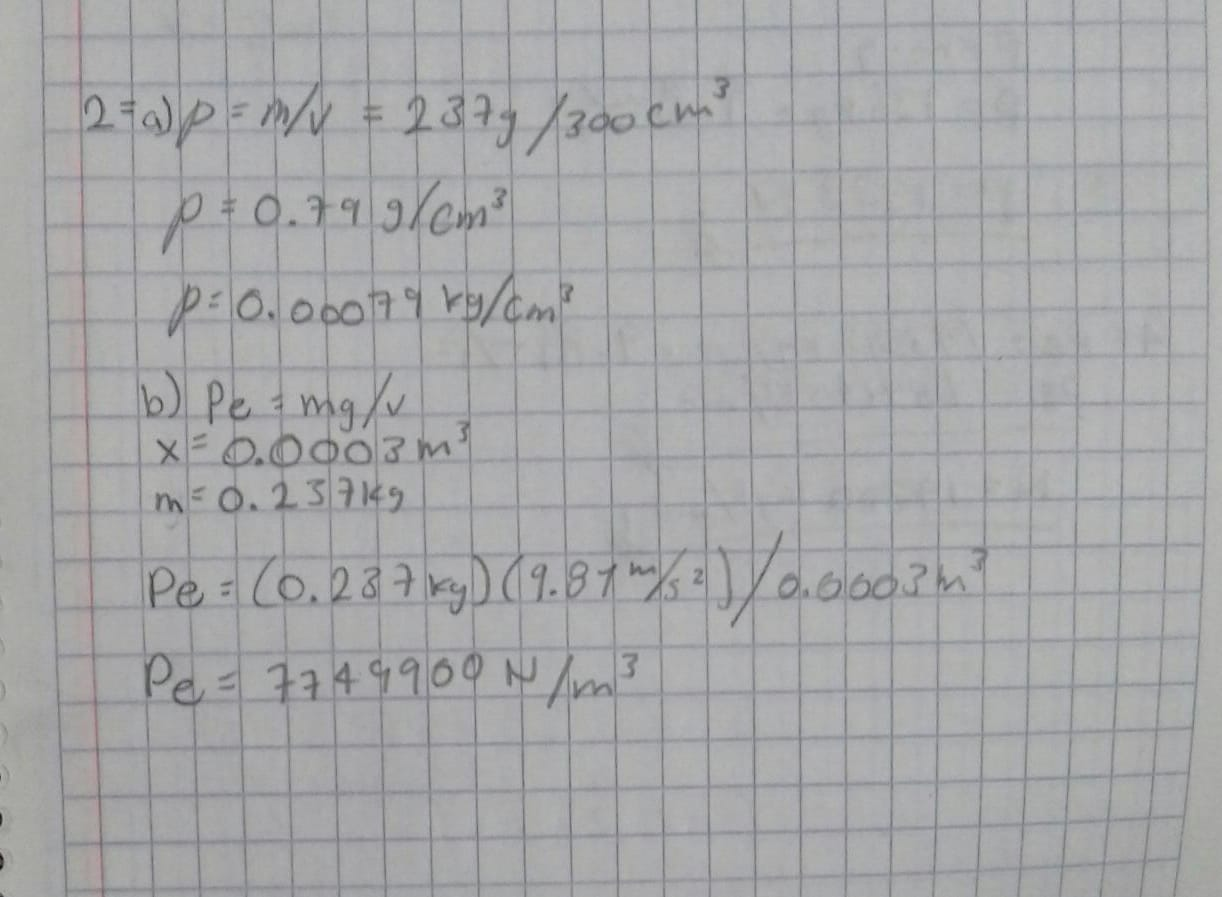 2=a) ρ = m/v = 237g/300cm³
ρ = 0.79 g/cm³
ρ = 0.00079 kg/cm³
b) Pe = mg/v
x = 0.0003 m³
m = 0.237kg
Pe = (0.237kg)(9.81 m/s²)/0.0003m³
Pe = 7749900 N/m³